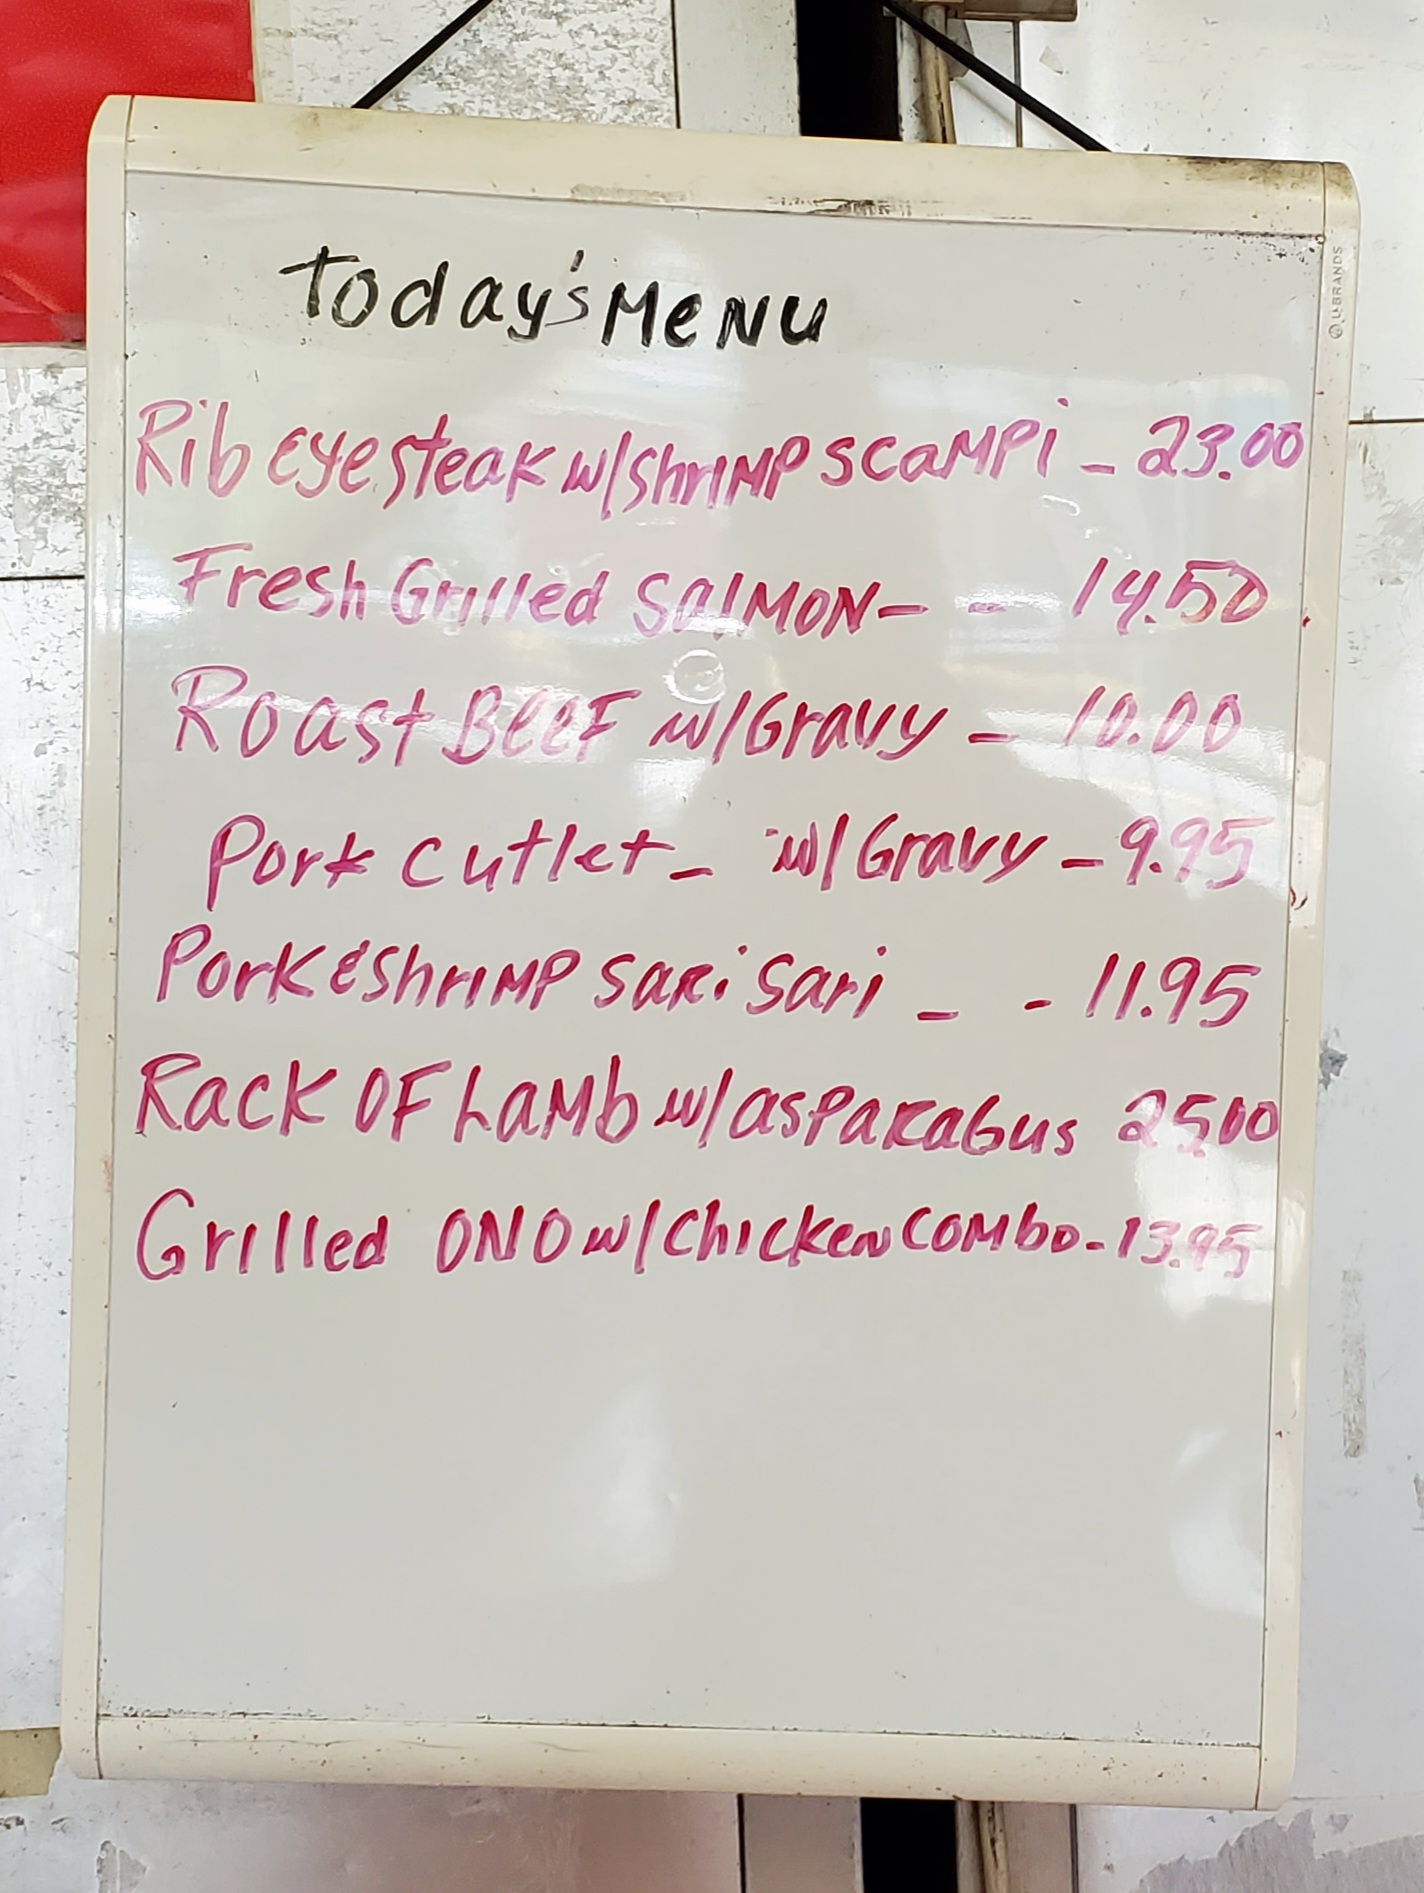 Today's Menu
Rib eye steak w/shrimp scampi - 23.00
Fresh Grilled Salmon - - 14.50
Roast Beef w/Gravy - 10.00
Pork cutlet - w/Gravy - 9.95
Pork & shrimp sari sari - - 11.95
Rack OF Lamb w/asparagus 25.00
Grilled ONO w/chicken combo - 13.95
U BRANDS